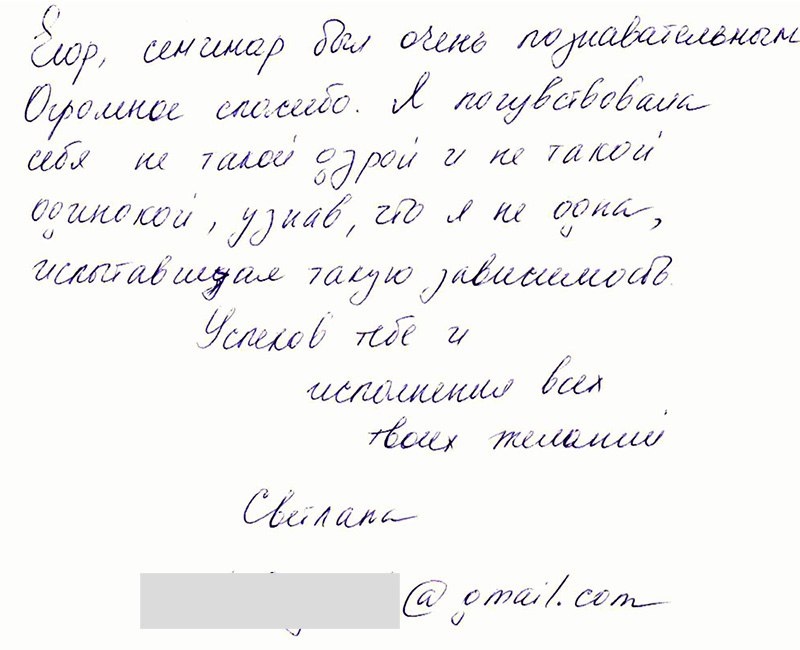 Егор, семинар был очень познавательным
Огромное спасибо. Я почувствовала
себя не такой дурой и не такой
одинокой, узнав, что я не одна,
испытавшая такую зависимость.
Успехов тебе и
исполнения всех
твоих желаний
Светлана
@gmail.com